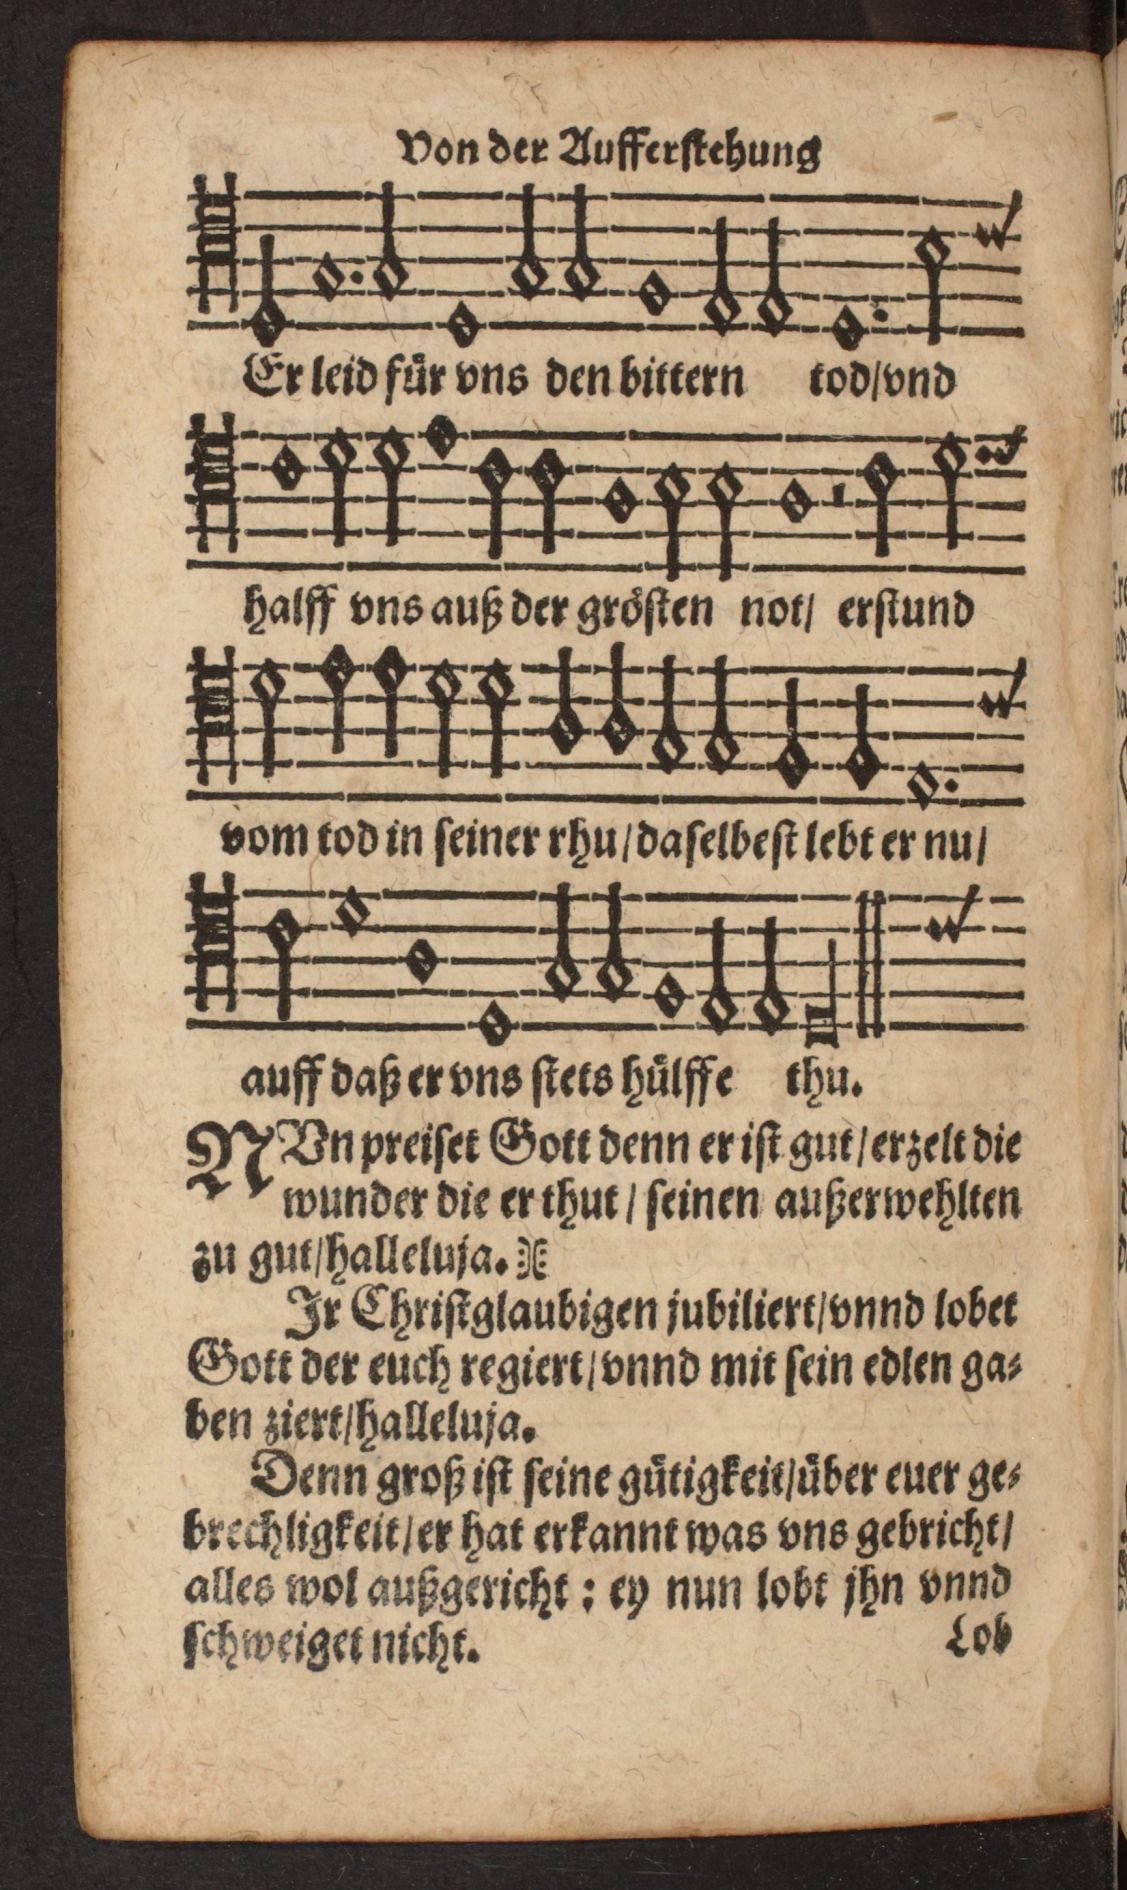 Von der Aufferstehung
Er leid für vns den bittern tod/vnd
halff vns auß der grösten not/ erstund
vom tod in seiner rhu/daselbest lebt er nu/
auff daß er vns stets hülffe thu.
NVn preiset Gott denn er ist gut/erzelt die
wunder die er thut/ seinen außerwehlten
zu gut/halleluja.
Jr Christglaubigen jubiliert/vnnd lobet
Gott der euch regiert/vnnd mit sein edlen ga⸗
ben ziert/halleluja.
Denn groß ist seine gütigkeit/über euer ge⸗
brechligkeit/er hat erkannt was vns gebricht/
alles wol außgericht : ey nun lobt jhn vnnd
schweiget nicht.
Lob